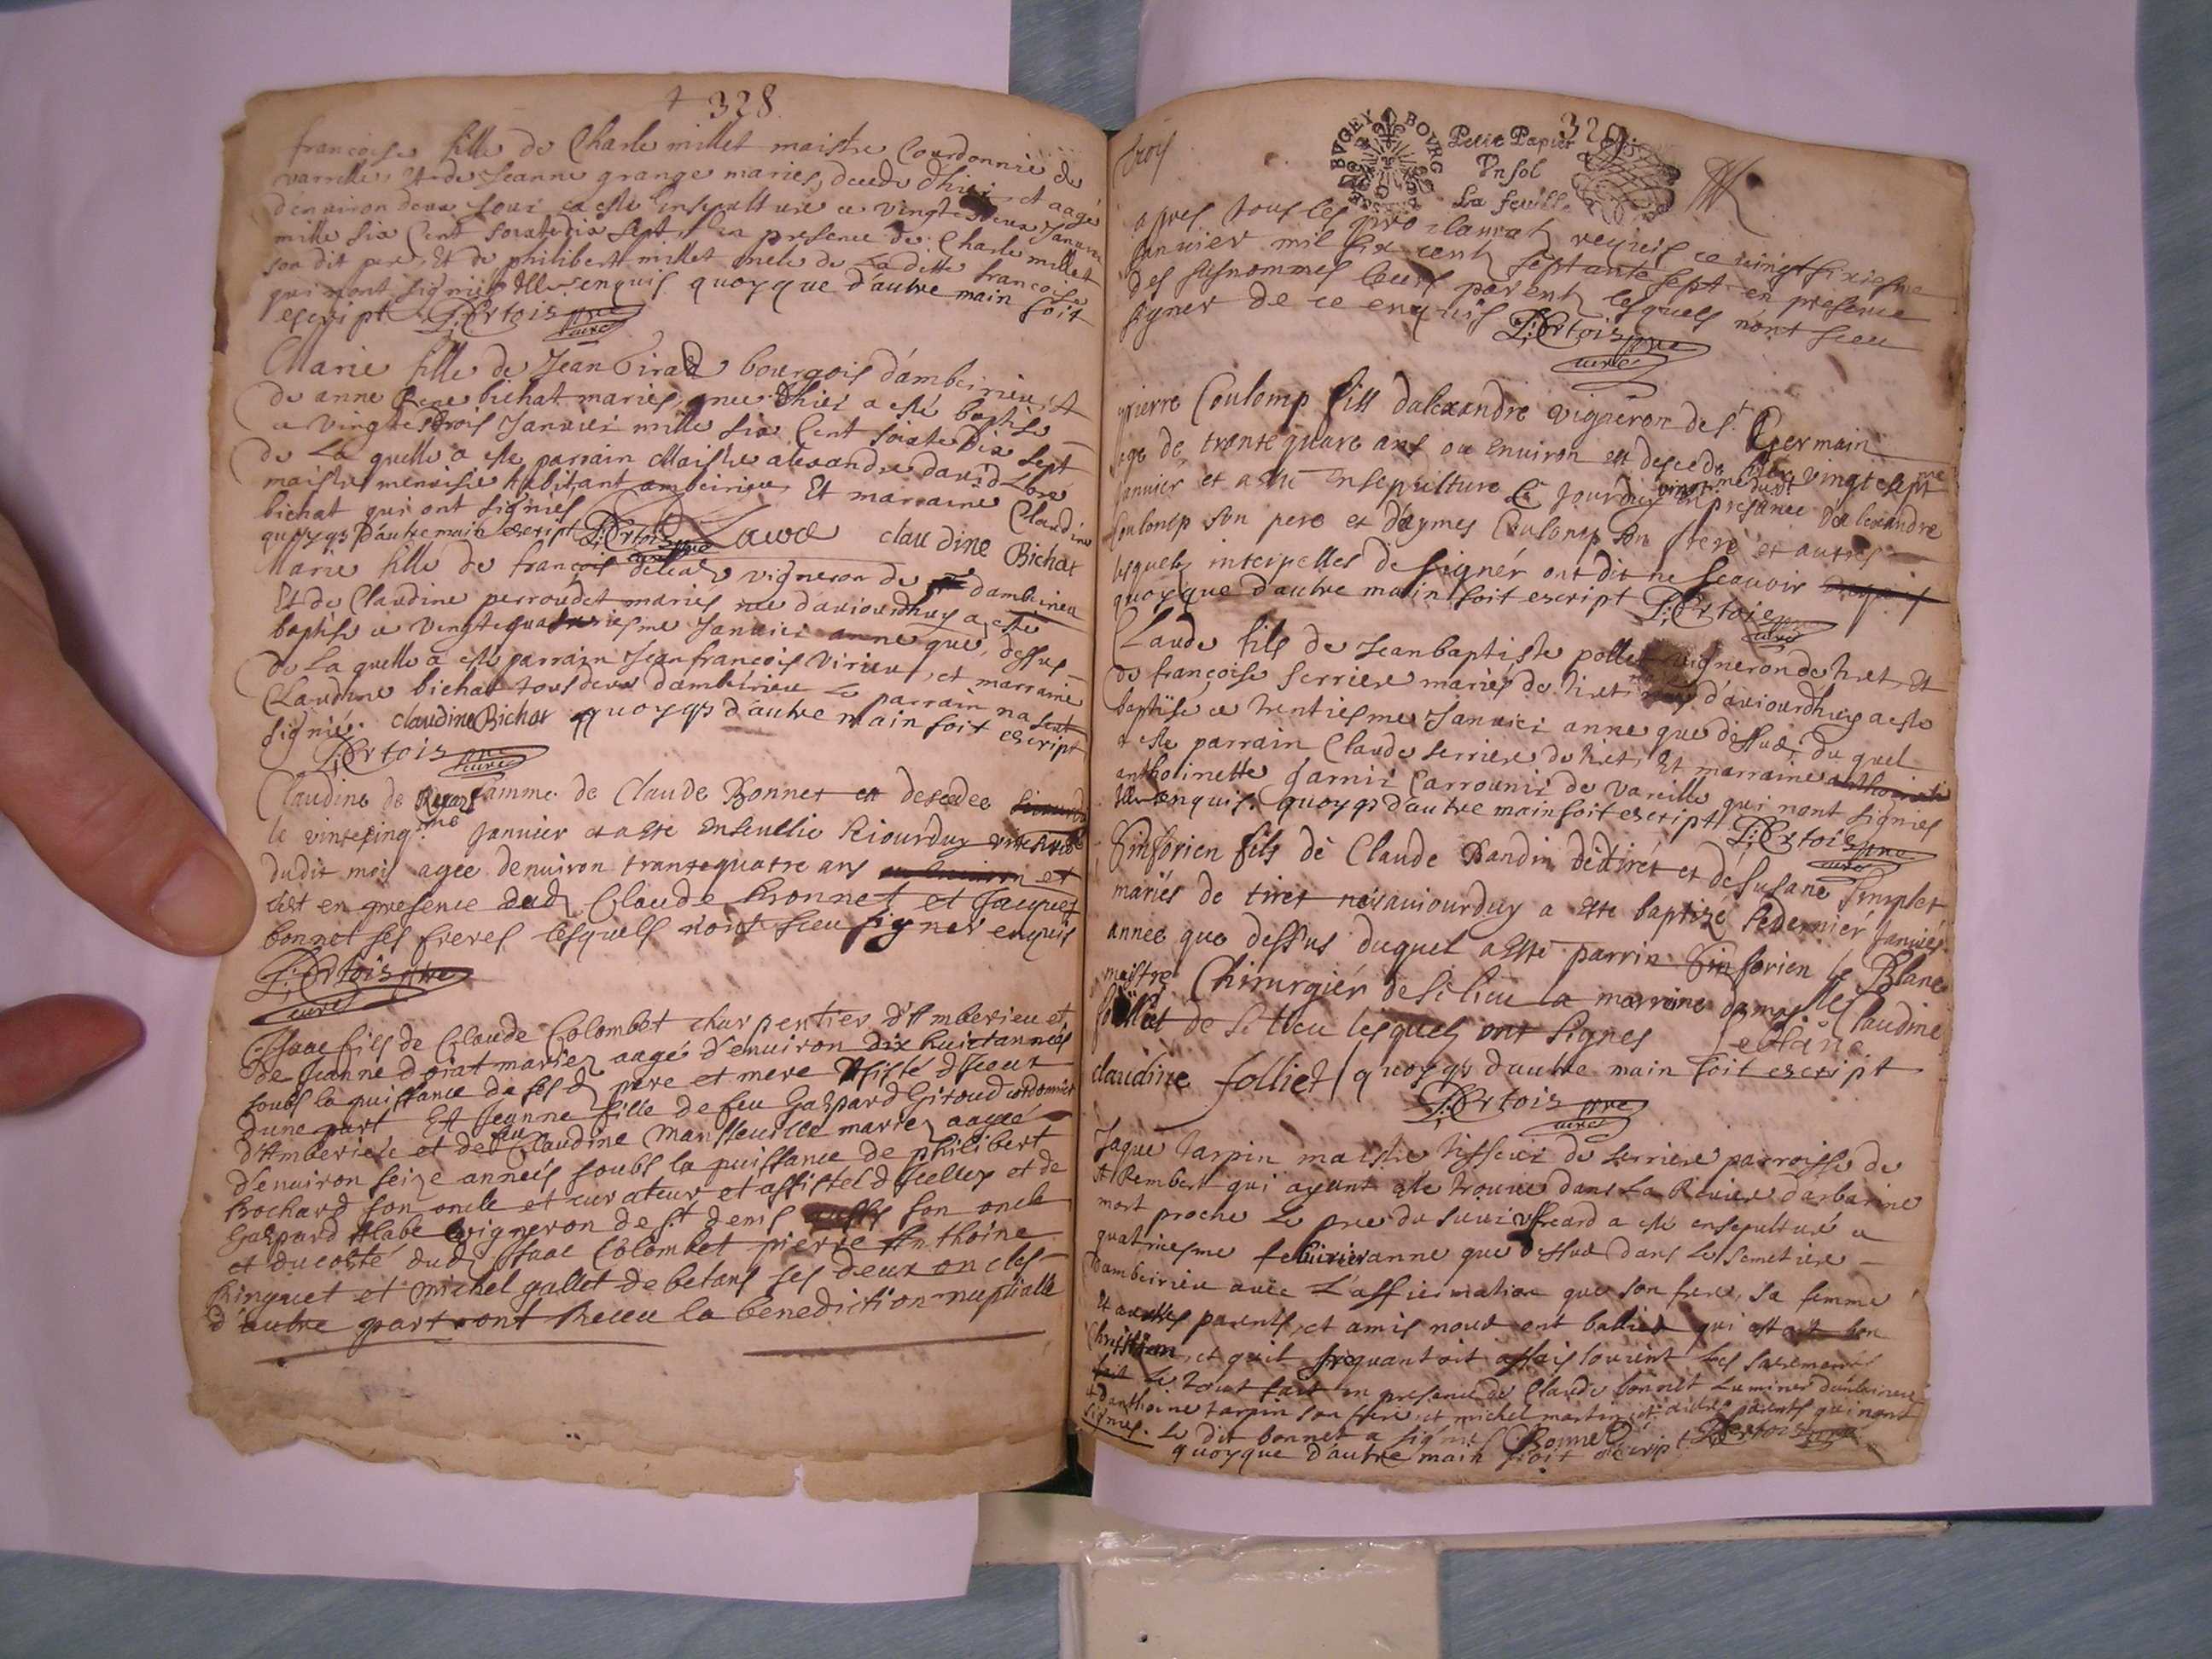 + 328
francoise fille de Charle millet maistre Courdonnie de
varreilles et de Jeanne grange mariés, decede dhier et aagé
denviron deux jour a este ensepulturé ce vingt deux Janvier
mille six Cent soixate dix sept, en presence de Charle millet
son dit pere, Et de philibert millet oncle de La ditte francoise
qui n'ont signiés Illec enquis quoyque d'autre main soit
escript P: Ertois pre curé
Marie fille de Jean Girad bourgois d'ambeirieu, et
de anne bichat mariés, nee dhier a esté baptisé
ce vingt trois Janvier mille six Cent soixate Dix sept
de La quelle a este parrain Maistre alexandre david Lore
maistre menuisie habitant ambeirieu Et marraine Claudine
bichat qui ont signiés
quoyqs d'autre main escript P: Ertois pre Laure claudine Bichat
Marie fille de francois vigneron de dambeirieu
Et de Claudine perroudet mariés nee d'aviourdhuy a este
baptisé ce vingt quatriesme Janvier anne que, dessus
de La quelle a este parrain Jean francois Virieu, et marraine
Claudine bichat tous deux d'ambérieu Le parrain na sceut
signié. claudine Bichat quoyqs d'autre main soit escript
P: Ertois pre curé
Claudine de famme de Claude Bonnet est decedee
le vintecinq.me Janvier et a este enseulie hiourduy
dudit mois agée denviron trantequatre ans
c'est en presence dud Claude Bonnet et Jacques
bonnet ses freres lesquels n'ont sceu signer enquis
P: Ertois pre curé
Isaac fils de Claude Colombet charpentier d'Amberieu et
de Jeanne doiat mariez aagé d'environ dix huict années
soubs la puissance de ses d pere et mere assisté d'Iceux
d'une part Et Jeanne fille de feu Gaspard Giroud cordonnier
d'Amberieu et de feu Claudine Manssevelle mariez aagée
d'environ seize années soubs la puissance de philibert
Brochard son oncle et curateur et assistée d'Icelluy et de
Gaspard Alabe vigneron de St denis aussy son oncle
et du costé dud Isaac Colombet pierre Anthoine
Ringuet et michel gallet de betans ses deux oncles
d'autre part ont Receu la benediction nuptialle
Trois
BVGEY BOVRG
Petit Papier
Vn sol
La feuille
329
apres tous les proclamats requis ce vingt sixiesme
Janvier mil six cents septante sept en presence
des susnommés leurs parents lesquels n'ont sceu
signer de ce enquis P: Ertois pre
curé
pierre Coulomp fils dalexandre vigneron de St Germain
age de trante quatre ans ou environ est decede hier vingtesept.me
Janvier et a esté ensepulture Ce Jourduy en presance d'alexandre
Coulomp son pere et d'aymes Coulomp son frere et autres
lesquels interpelles de signér ont dit ne scavoir
quoyque d'autre main soit escript P: Ertois pre curé
Claude fils de Jean baptiste pollet vigneron de tiret Et
de françoise serriere mariés de tiret d'aviourdhuy a este
baptisé ce trentiesme Janvier anne que dessus, du quel
a este parrain Claude serriere de tiret, Et marraine
anthoinette Jarnii Carrounii de Vareille qui nont signiés
Illec enquis quoyqs d'autre main soit escript P: Ertois pre
Sinforien fils de Claude Bandin de tiret et de susane simplet
mariés de tiret né aviourduy a este baptizé le dernier Janvier
annee que dessus duquel a este parrin Sinforien le Blanc
maistre Chirurgiér de St lieu la marrine damoiselle Claudine
folliet de St lieu lesquels ont signes leblanc
claudine folliet quoyqs d'autre main soit escript
P: Ertois pre
curé
Jaque tarpin maistre tisseur de serriere parroisse de
St Rembert qui ayant esté trouve dans La Riviere d'arbarine
mort proche Le pre du suivi a esté ensepulturé ce
quatriesme febvrier anne que dessus dans Le semetiere
Dambeirieu avec L'affirmation que son frere, sa femme
Et aultres parents, et amis nous ont baillés qui estoit bon
Christien, et quil frequantoit assais souvent Les sacrements
Le tout fait en presence de Claude bonnet Luminer d'ambeirieu
d'anthoine tarpin son frere et michel martin et autres parents qui nont
signiés. Le dit bonnet a signié Bonnet P: Ertois pre
quoyque d'autre main soit escript